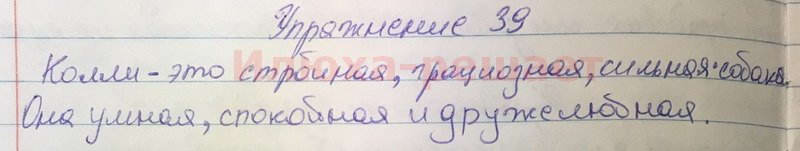 Упражнение 39
Илюха-решает
Колли - это стройная, грациозная, сильная собака.
Она умная, спокойная и дружелюбная.